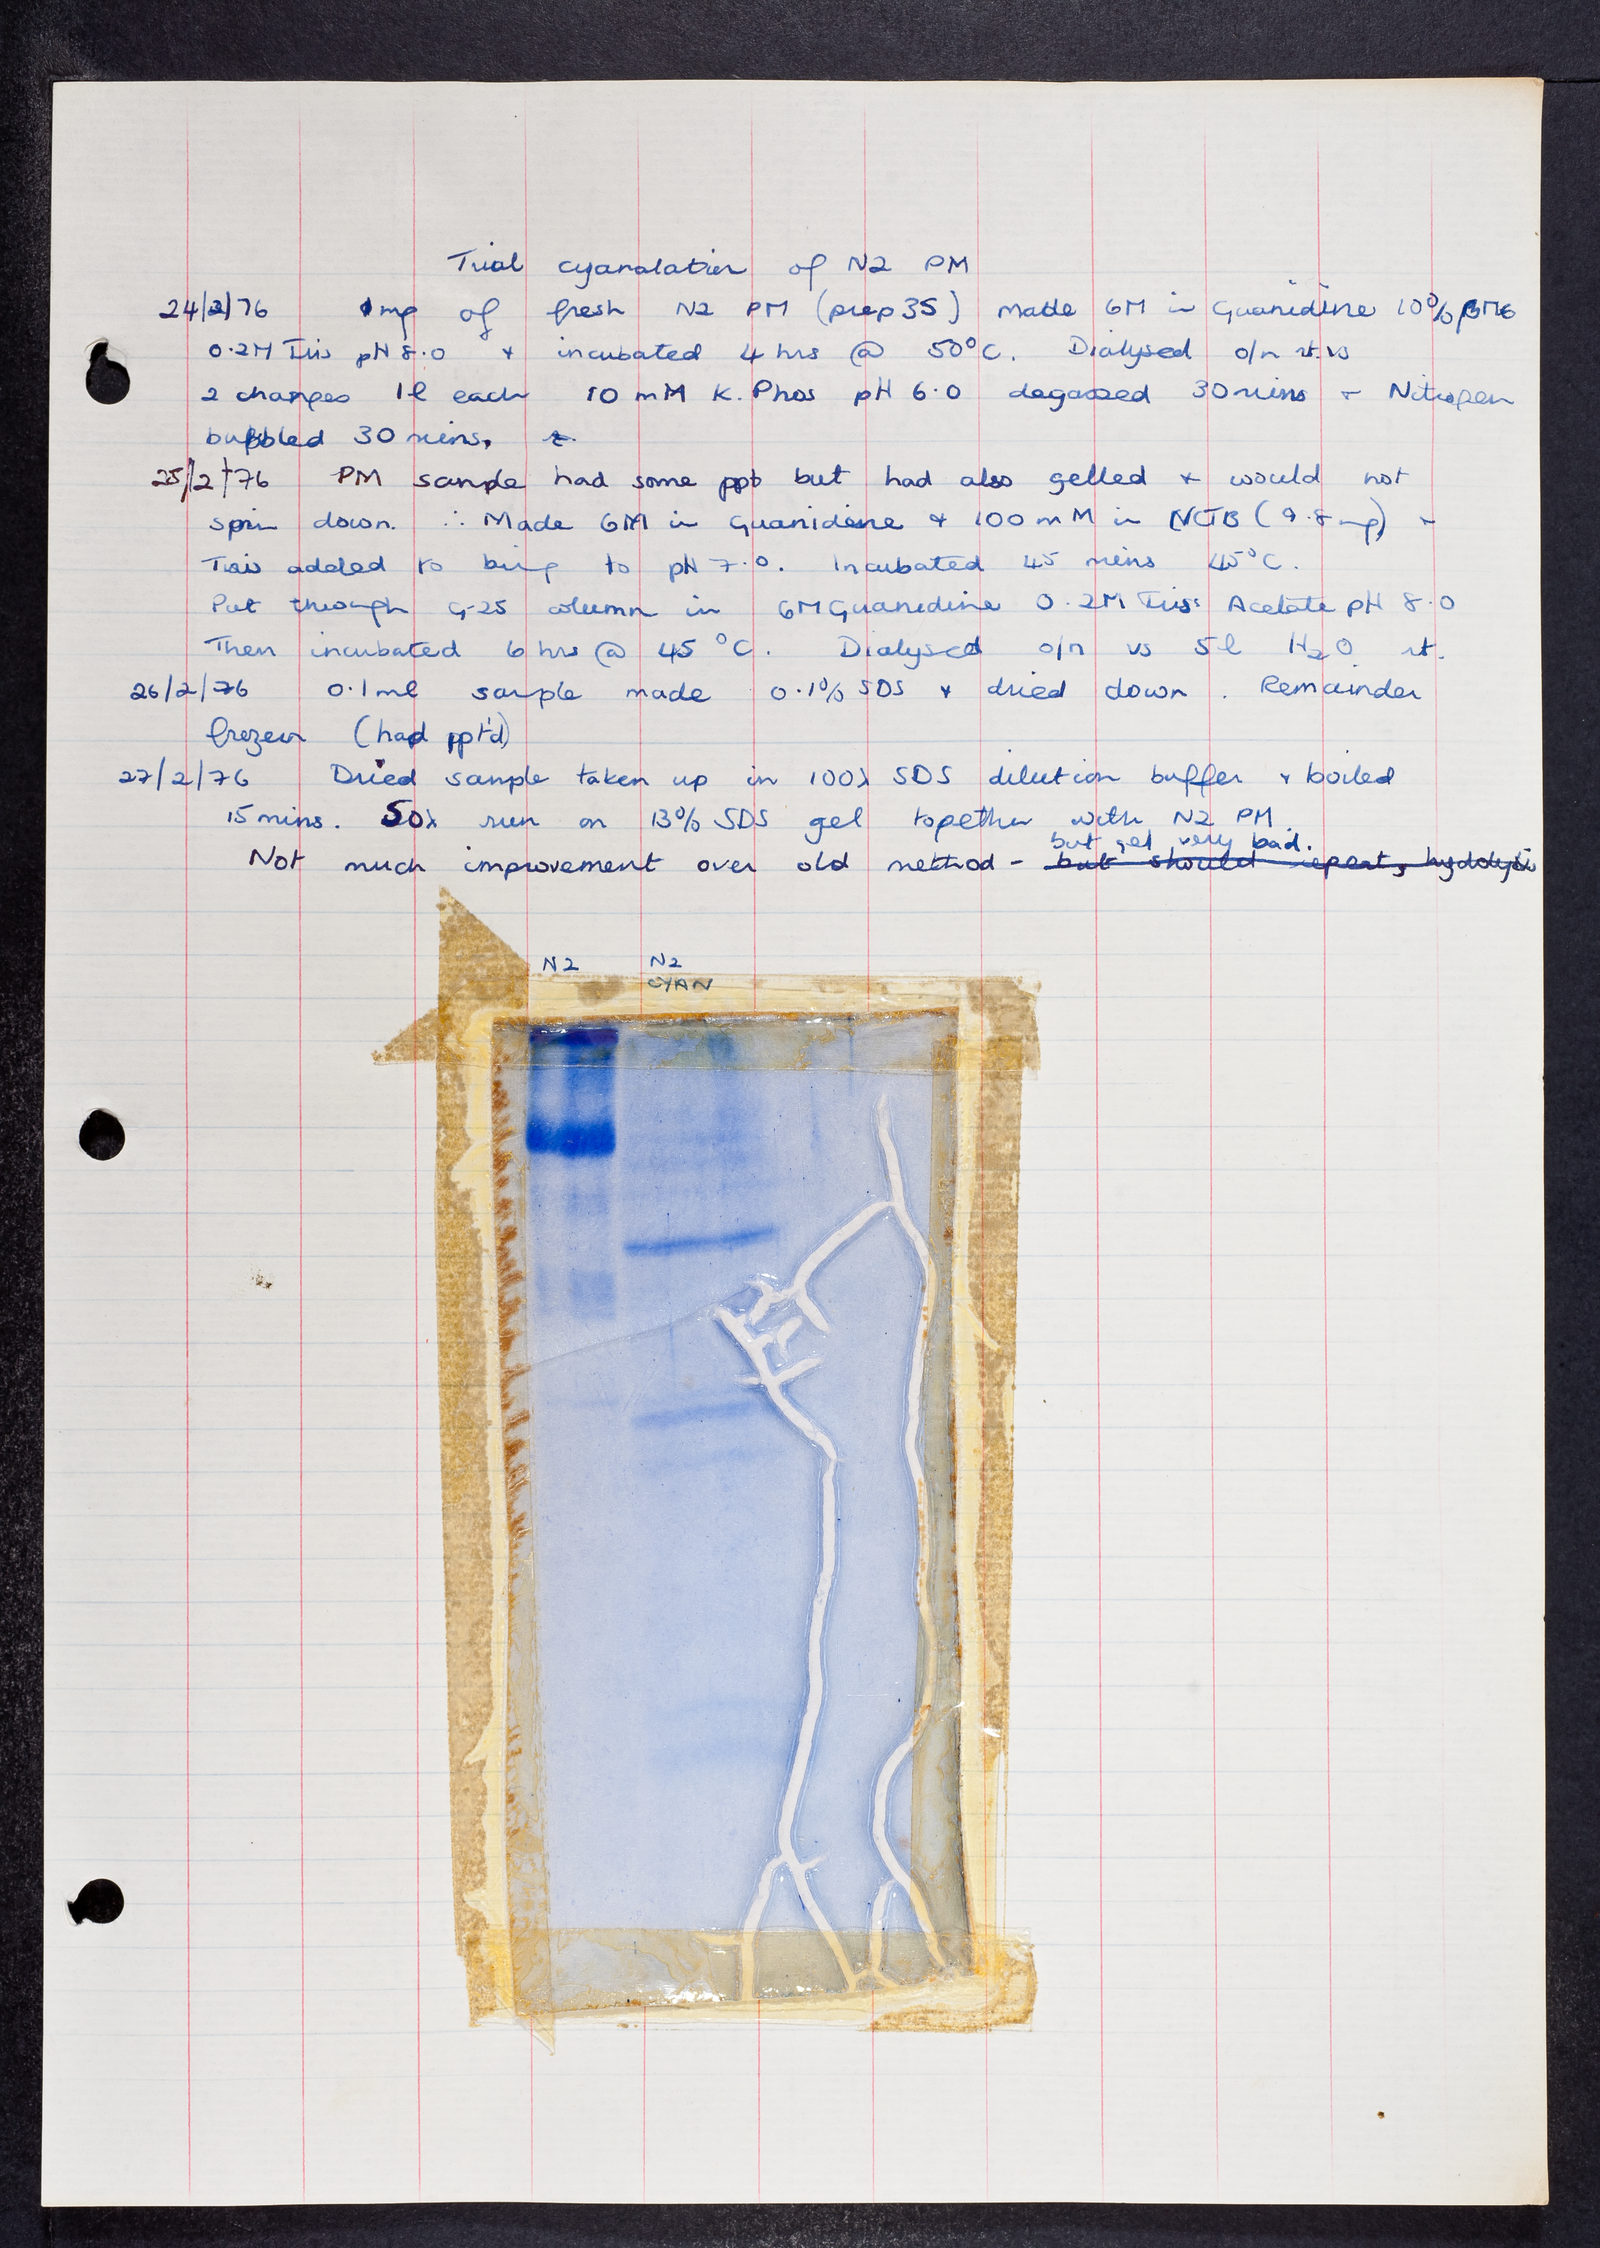 Trial cyanalation of N2 PM
24/2/76 1mg of fresh N2 PM (prep 35) made 6M in Guanidine 10% βME
0.2M Tris pH 8.0 + incubated 4 hrs @ 50°C. Dialysed o/n rt. vs
2 changes 1l each 10 mM K. Phos pH 6.0 degassed 30 mins + Nitrogen
bubbled 30 mins.
25/2/76 PM sample had some ppt but had also gelled + would not
spin down. ∴ Made 6M in Guanidine + 100 mM in NTCB (9.8 mg) +
Tris added to bring to pH 7.0. Incubated 45 mins 45°C.
Put through G-25 column in 6M Guanidine 0.2M Tris Acetate pH 8.0
Then incubated 6 hrs @ 45 °C. Dialysed o/n vs 5l H2O rt.
26/2/76 0.1 ml sample made 0.1% SDS + dried down. Remainder
frozen (had ppt'd)
27/2/76 Dried sample taken up in 100λ SDS dilution buffer + boiled
15 mins. 50λ run on 13% SDS gel together with N2 PM.
but gel very bad.
Not much improvement over old method - but should repeat, hydrolysis
N2 N2
CYAN